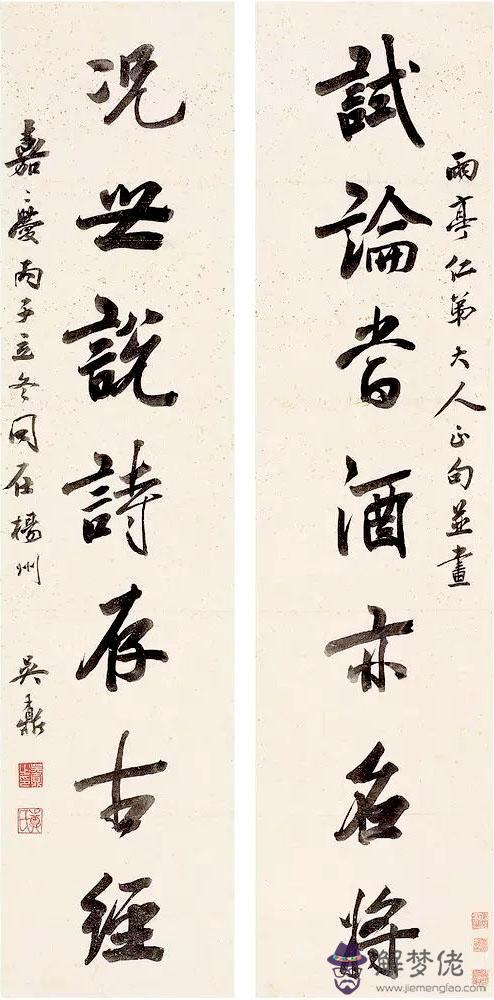 雨亭仁弟大人正句並書
試論嘗酒亦名將
況世說詩存古經
嘉慶丙子立冬同在楊州
吳鼒
解梦佬
www.jiemenglao.com